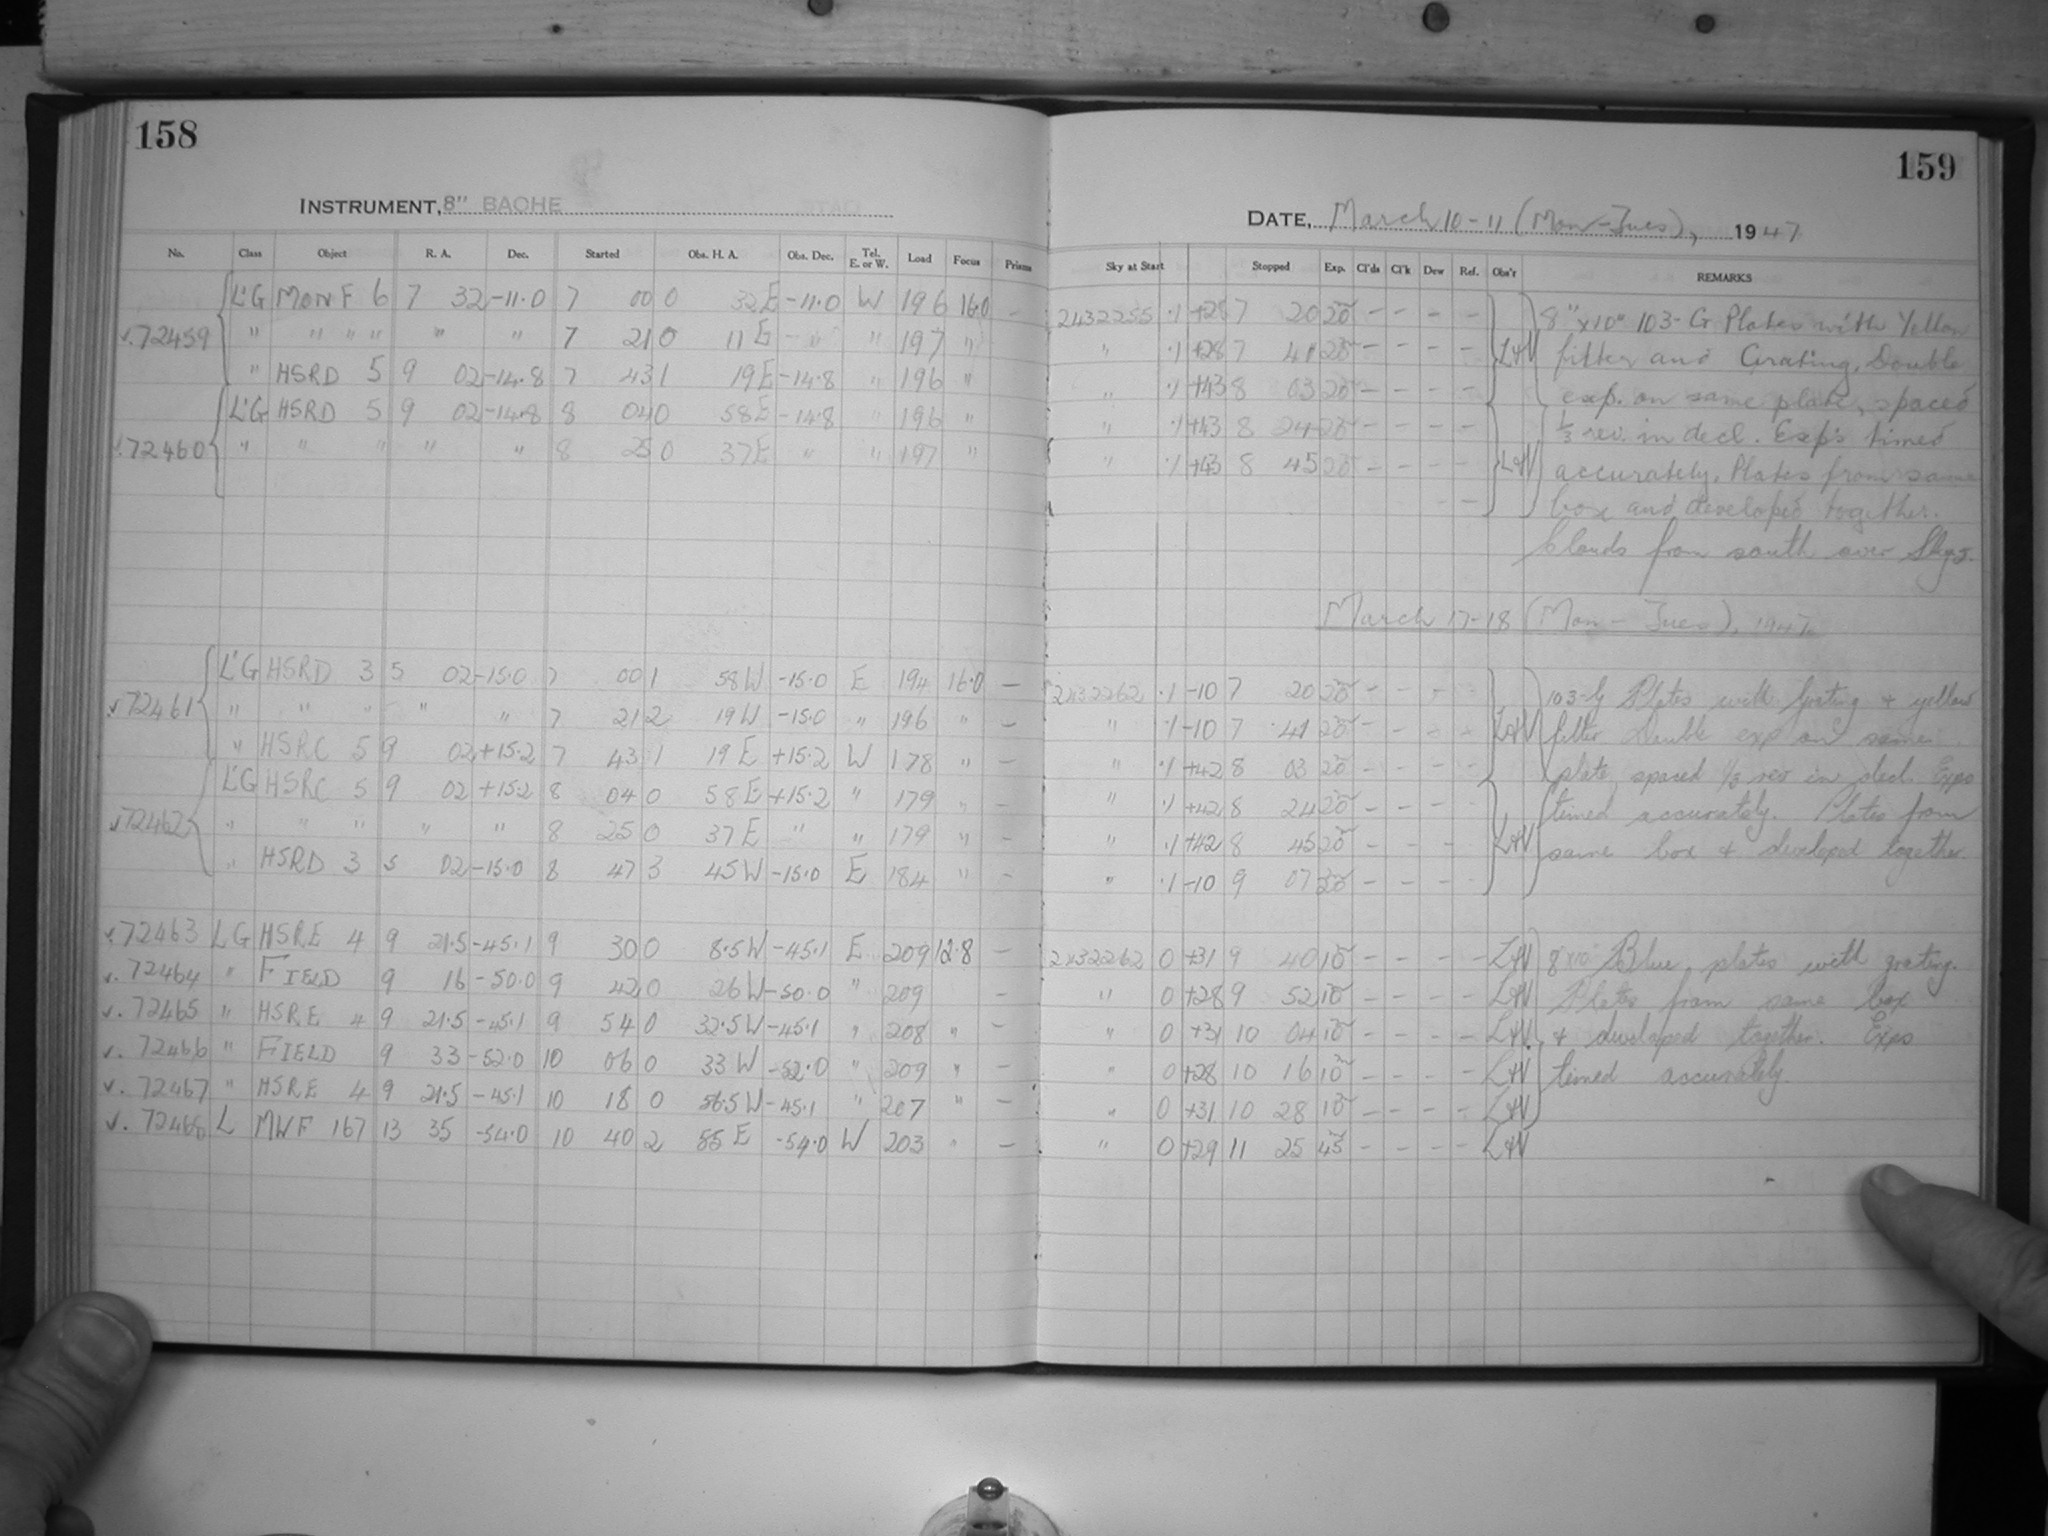 158
INSTRUMENT, 8" BACHE
No. Class Object R. A. Dec. Started Obs. H. A. Obs. Dec. Tel. E. or W. Load Focus Prisms
L'G MON F 6 7 32 -11.0 7 00 0 32E -11.0 W 196 16.0 -
v.72459 " " " " " " 7 21 0 11E - " " 197 "
" HSRD 5 9 02 -14.8 7 43 1 19E -14.8 " 196 "
L'G HSRD 5 9 02 -14.8 8 04 0 58E -14.8 " 196 "
v.72460 " " " " " 8 25 0 37E " " 197 "
L'G HSRD 3 5 02 -15.0 7 00 1 58W -15.0 E 194 16.0 -
v.72461 " " " " " 7 21 2 19W -15.0 " 196 " -
" HSRC 5 9 02 +15.2 7 43 1 19E +15.2 W 178 " -
L'G HSRC 5 9 02 +15.2 8 04 0 58E +15.2 " 179 " -
v72462 " " " " " 8 25 0 37E " " 179 " -
" HSRD 3 5 02 -15.0 8 47 3 45W -15.0 E 184 " -
v.72463 LG HSRE 4 9 21.5 -45.1 9 30 0 8.5W -45.1 E 209 12.8 -
v.72464 " FIELD 9 16 -50.0 9 42 0 26W -50.0 " 209 -
v.72465 " HSRE 4 9 21.5 -45.1 9 54 0 32.5W -45.1 " 208 " -
v.72466 " FIELD 9 33 -52.0 10 06 0 33W -52.0 " 209 " -
v.72467 " HSRE 4 9 21.5 -45.1 10 18 0 56.5W -45.1 " 207 " -
v. L MWF 167 13 35 -54.0 10 40 2 55E -54.0 W 203 " -
159
DATE, March 10-11 (Mon-Tues), 1947
Sky at Start Stopped Exp. Cl'ds Cl'k Dew Ref. Obs'r REMARKS
2432255 .1 +28 7 20 20 - - - - 8"x10" 103-G Plates with Yellow
" .1 +28 7 41 20 - - - - filter and Grating. Double
" .1 +43 8 03 20 - - - - exp. on same plate, spaced
" .1 +43 8 24 20 - - - - 1/3 rev. in decl. Exp's timed
" .1 +43 8 45 20 - - - - accurately. Plates from same
box and developed together.
Clouds from south over Sky 5.
March 17-18 (Mon-Tues), 1947
2432262 .1 -10 7 20 20 - - - - 103-G Plates with Grating + yellow
" .1 -10 7 41 20 - - - - filter Double exp on same
" .1 +42 8 03 20 - - - - plate, spaced 1/3 rev in decl. Exps
" .1 +42 8 24 20 - - - - timed accurately. Plates from
" .1 +42 8 45 20 - - - - same box + developed together.
" .1 -10 9 07 20 - - - -
2432262 0 +31 9 40 10 - - - - 8x10 Blue plates with grating.
" 0 +28 9 52 10 - - - - Plates from same box
" 0 +31 10 04 10 - - - - + developed together. Exps
" 0 +28 10 16 10 - - - - timed accurately.
" 0 +31 10 28 10 - - - -
" 0 +29 11 25 45 - - - -